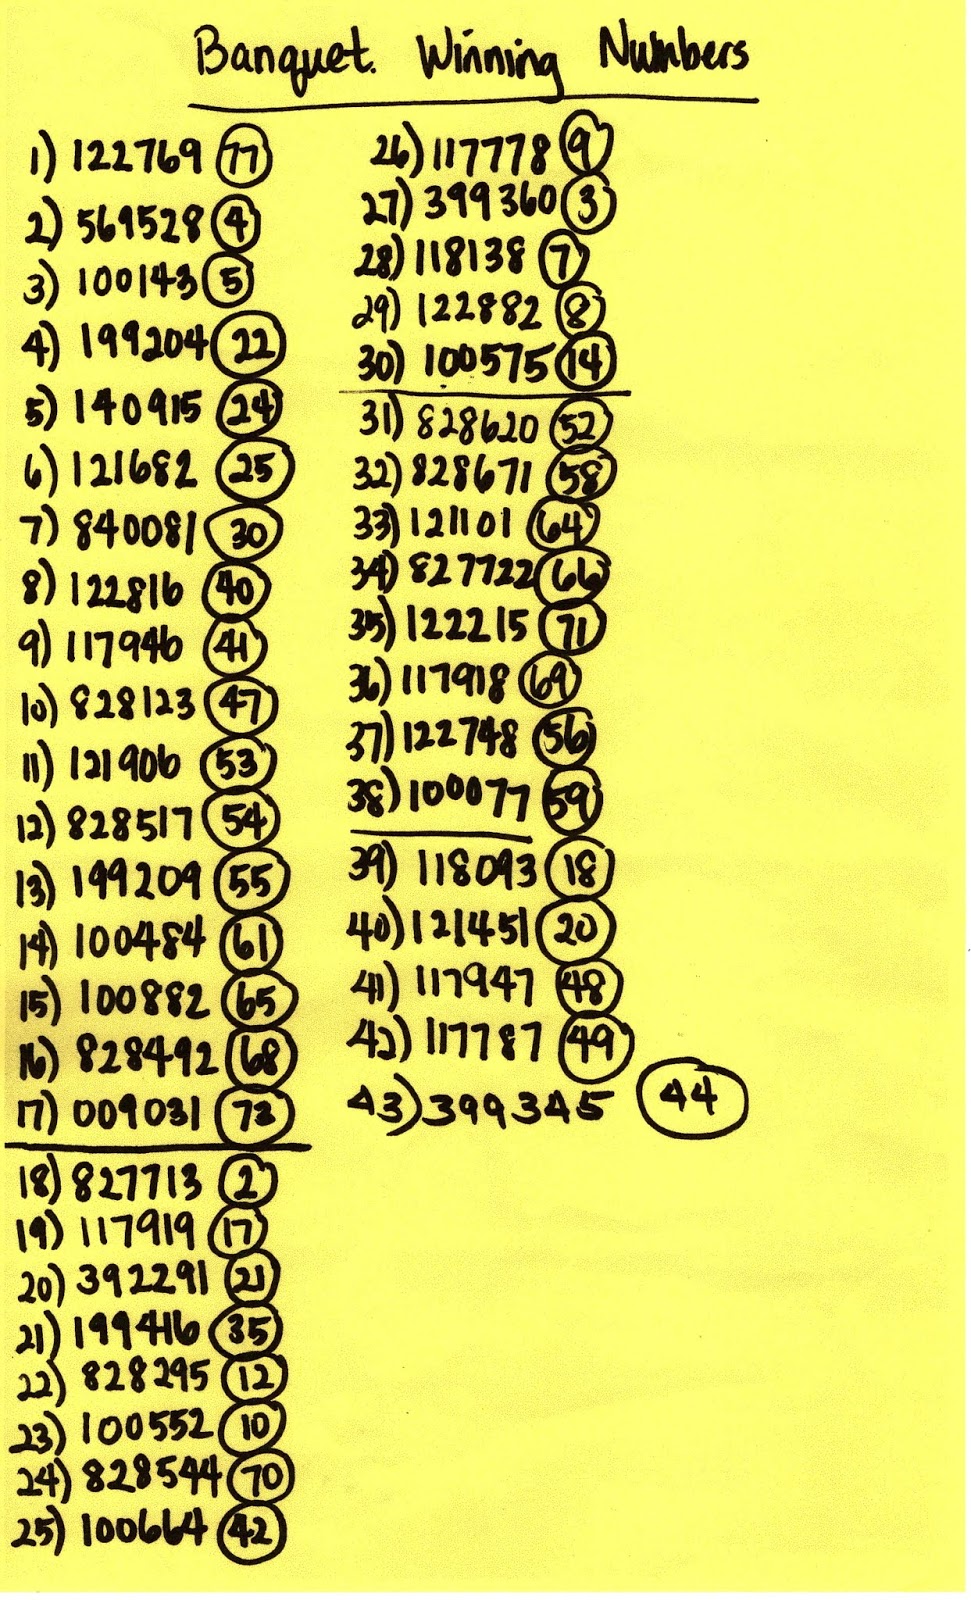 Banquet. Winning Numbers
1) 122769 77
2) 569528 4
3) 100143 5
4) 199204 22
5) 140915 24
6) 121682 25
7) 840081 30
8) 122816 40
9) 117946 41
10) 828123 47
11) 121906 53
12) 828517 54
13) 199209 55
14) 100484 61
15) 100882 65
16) 828492 68
17) 009031 73
18) 827713 2
19) 117919 17
20) 392291 21
21) 199416 35
22) 828295 12
23) 100552 10
24) 828544 70
25) 100664 42
26) 117778 9
27) 399360 3
28) 118138 7
29) 122882 8
30) 100575 14
31) 828620 52
32) 828671 58
33) 121101 64
34) 827722 66
35) 122215 71
36) 117918 69
37) 122748 56
38) 100077 59
39) 118093 18
40) 121451 20
41) 117947 48
42) 117787 49
43) 399345 44